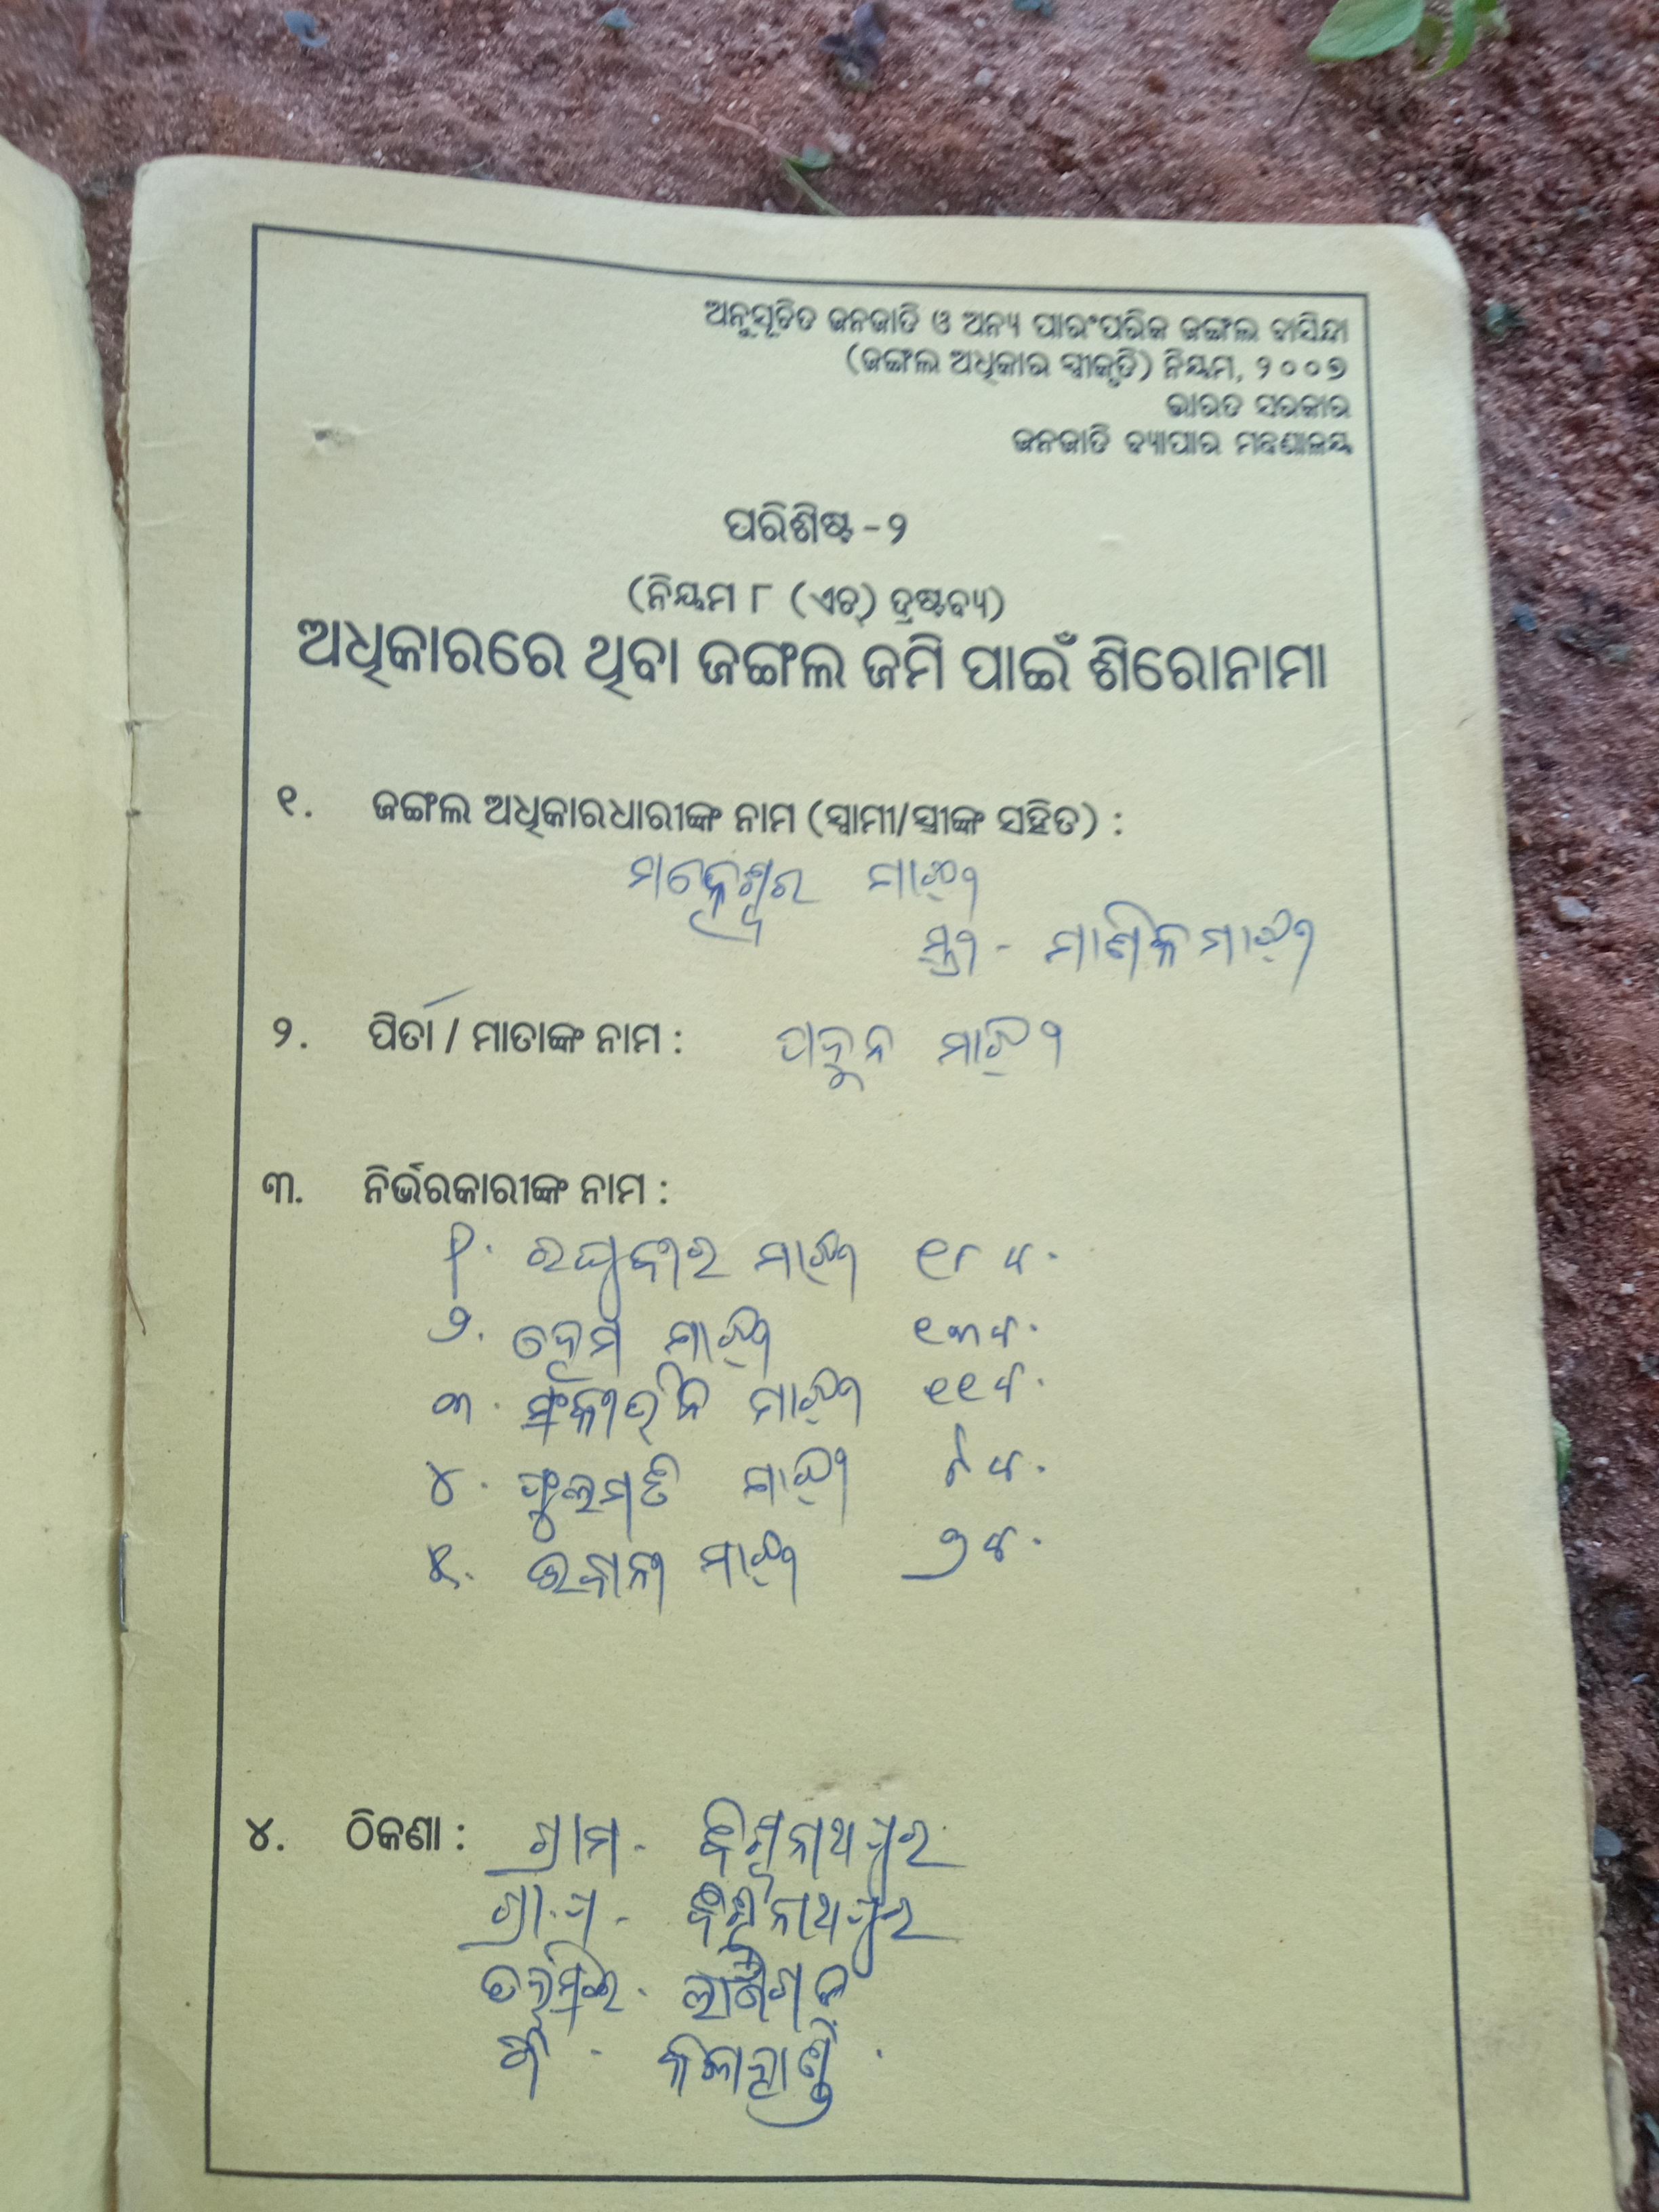 ଅନୁସୂଚିତ ଜନଜାତି ଓ ଅନ୍ୟ ପାରଂପରିକ ଜଙ୍ଗଲ ବାସିନ୍ଦା
(ଜଙ୍ଗଲ ଅଧିକାର ସ୍ୱୀକୃତି) ନିୟମ, ୨୦୦୭
ଭାରତ ସରକାର
ଜନଜାତି ବ୍ୟାପାର ମନ୍ତ୍ରଣାଳୟ
ପରିଶିଷ୍ଟ -୨
(ନିୟମ ୮ (ଏଚ୍) ଦ୍ରଷ୍ଟବ୍ୟ)
ଅଧିକାରରେ ଥିବା ଜଙ୍ଗଲ ଜମି ପାଇଁ ଶିରୋନାମା
୧. ଜଙ୍ଗଲ ଅଧିକାରଧାରୀଙ୍କ ନାମ (ସ୍ୱାମୀ/ସ୍ତ୍ରୀଙ୍କ ସହିତ) :
ମାଝୀ
ସ୍ତ୍ରୀ - ମାଣିକ ମାଝୀ
୨. ପିତା / ମାତାଙ୍କ ନାମ : ମାଝୀ
୩. ନିର୍ଭରକାରୀଙ୍କ ନାମ :
୧. ରଘୁବୀର ମାଝୀ ୧୮ ବ.
୨. ହେମ ମାଝୀ ୧୩ ବ.
୩. ମାଝୀ ୧୧ ବ.
୪. ଫୁଲମତି ମାଝୀ ୮ ବ.
୫. ଭବାନୀ ମାଝୀ ୬ ବ.
୪. ଠିକଣା : ଗ୍ରାମ - ବିଶ୍ୱନାଥପୁର
ଗ୍ରା.ପ - ବିଶ୍ୱନାଥପୁର
ତହସିଲ - ଲାଞ୍ଜିଗଡ଼
ଜି - କଳାହାଣ୍ଡି.